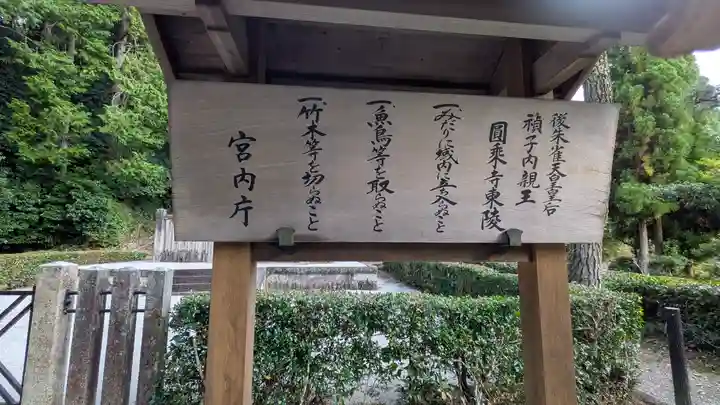 後朱雀天皇皇后
禎子内親王
圓乘寺東陵
一、みだりに域内に立入らぬこと
一、魚鳥等を取らぬこと
一、竹木等を切らぬこと
宮内庁